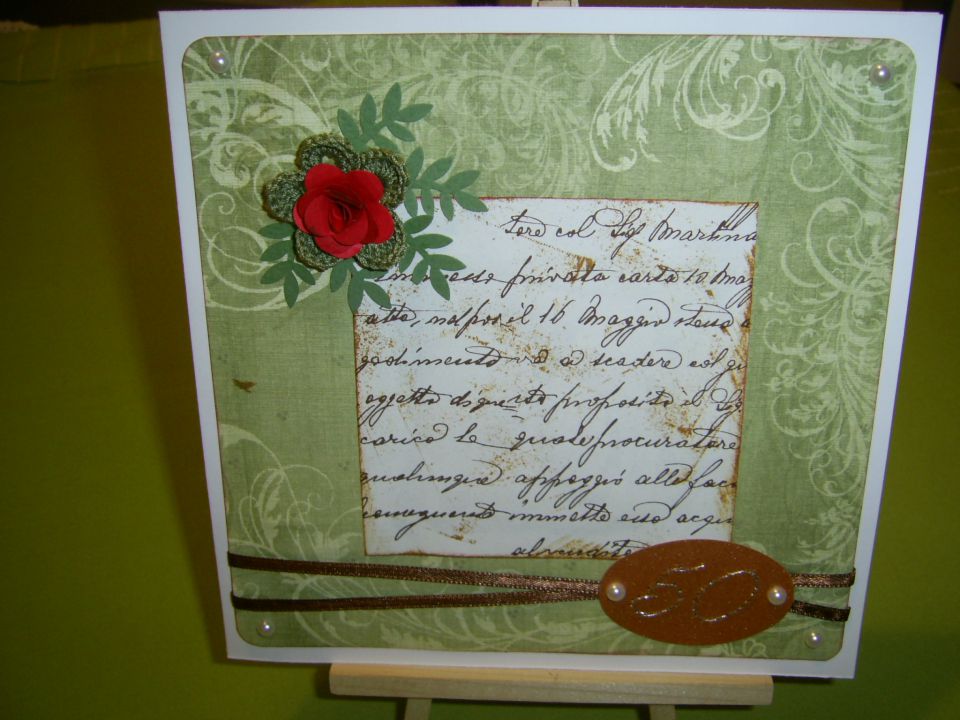 tere col Sigr Martina
esse privata carta 10 Mag
atto, nd poi il 16 Maggio stesso
godimento va a scadere col
oggetto di questo proposito il Sigr
carico le quale procuratore
qualunque appoggio alle
conseguente immette esso acqu
50